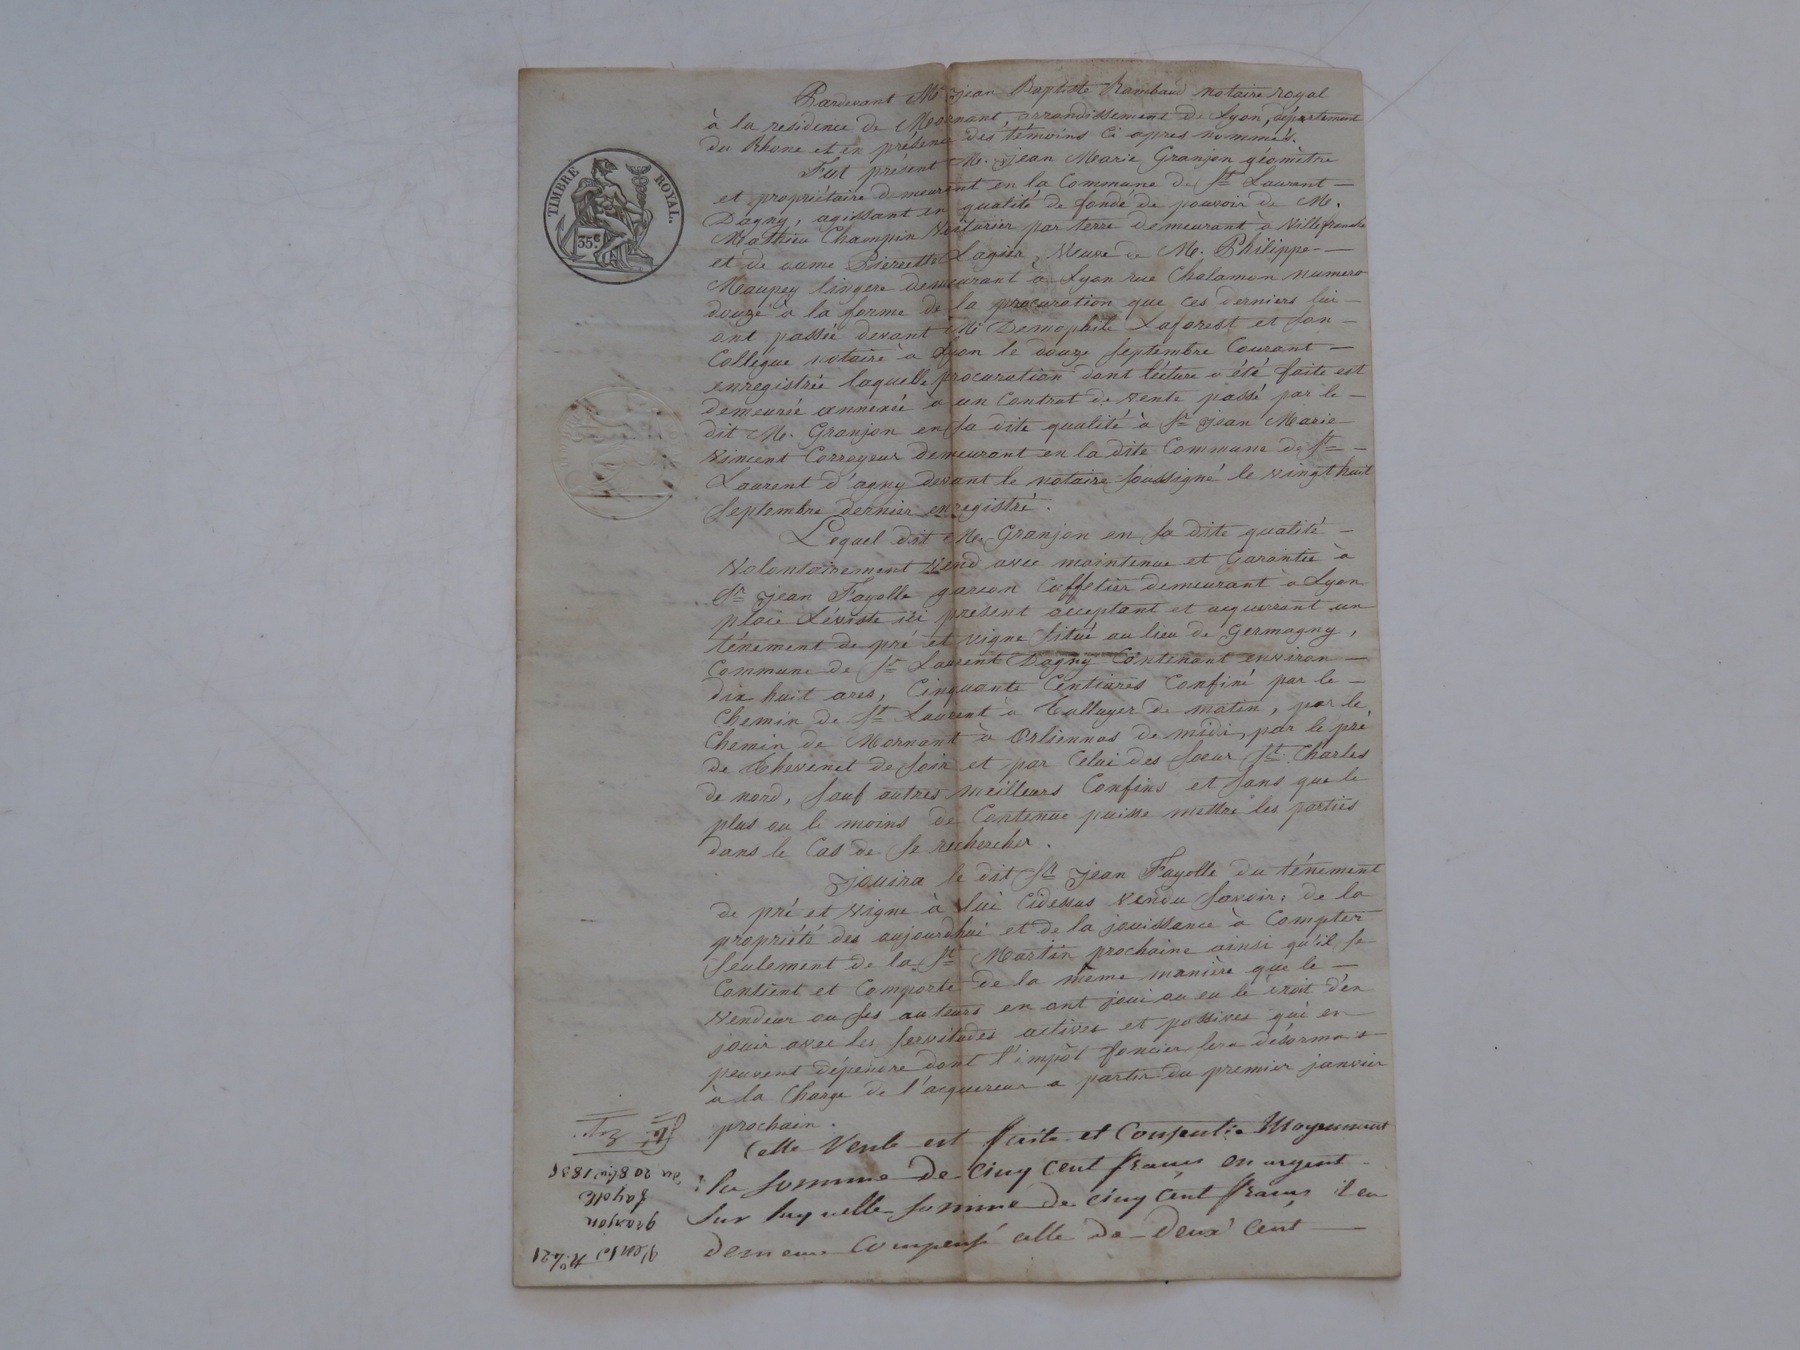 TIMBRE ROYAL.
35c.
Pardevant Me Jean Baptiste Rambaud notaire royal
à la residence de Mornant, arrondissement de Lyon, département
du Rhone et en présence des témoins ci apres nommés.
Fut présent M. Jean Marie Granjon géomètre
et propriétaire demeurant en la Commune de St Laurent —
Dagny, agissant en qualité de fondé de pouvoir de M.
Mathieu Champin Voiturier par terre demeurant à Villefranche
et de dame Pierrette Lagier, Veuve de M. Philippe —
Maupey lingere demeurant à Lyon rue Chalamon numero
douze à la forme de la procuration que ces derniers lui —
ont passée devant Me Demophile Laforest et son —
Collegue notaire à Lyon le douze Septembre Courant —
enregistrée laquelle procuration dont lecture a été faite est
demeurée annexée à un Contrat de vente passé par le —
dit M. Granjon en sa dite qualité à Sr Jean Marie
Vincent Corroyeur demeurant en la dite Commune de St —
Laurent d'agny devant le notaire soussigné le vingt huit
Septembre dernier enregistré.
Lequel dit M. Granjon en sa dite qualité —
Volontairement Vend avec maintenue et Garantie à
Sr Jean Fayolle garcon Caffetier demeurant à Lyon
place Léviste ici présent acceptant et acquerrant un
ténement de pré et vigne situé au lieu de Germagny,
Commune de St Laurent Dagny Contenant environ —
dix huit ares, Cinquante Centiares Confiné par le —
Chemin de St Laurent à Talluyer de matin, par le
Chemin de Mornant à Orliennas de midi, par le pré
de Thevenet de soir et par Celui des Soeur St Charles
de nord, sauf autres meilleurs Confins et sans que le
plus ou le moins de Contenue puisse mettre les parties
dans le Cas de se rechercher.
Jouira le dit Sr Jean Fayolle du ténement
de pré et vigne à lui Cidessus Vendu Savoir: de la
propriété des aujourdhui et de la jouissance à Compter
seulement de la St Martin prochaine ainsi qu'il se
Contient et Comporte de la même manière que le —
Vendeur ou ses auteurs en ont joui ou eu le droit d'en
jouir avec les servitudes actives et passives qui en
peuvent dépendre dont l'impôt foncier sera désormais
à la Charge de l'acquereur a partir du premier janvier
prochain.
Cette Vente est faite et Consentie Moyennant
la somme de cinq cent francs en argent
sur laquelle somme de cinq cent francs il en
demeure Compensé celle de deux cent —
Vente No. 421
granjon
fayolle
du 20 8bre 1835